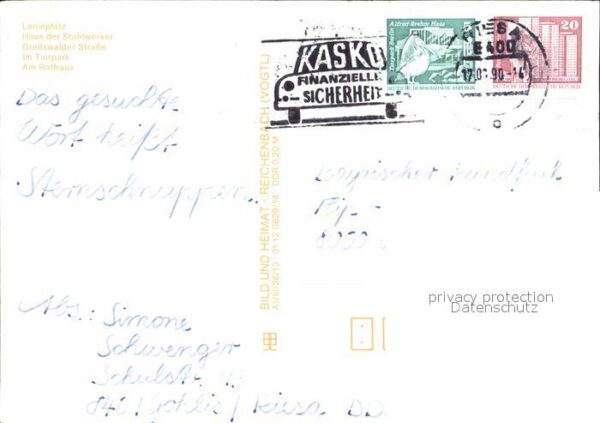 Leninplatz
Haus der Stahlwerker
Greifswalder Straße
Im Tierpark
Am Rathaus
KASKO
FINANZIELLE
SICHERHEIT
Alfred-Brehm-Haus
Tierpark Berlin
DEUTSCHE DEMOKRATISCHE REPUBLIK
20
DEUTSCHE DEMOKRATISCHE REPUBLIK
17.01.90-14
Das gesuchte
Wort heißt
Sternschnuppen
BILD UND HEIMAT · REICHENBACH (VOGTL)
A1/III/26/13 · 01 12 0629/14 · DDR 0,20 M
Bayrischer Rundfunk
Pip-
8000
privacy protection
Datenschutz
Abs.: Simone
Schwenger
Schulstr.
8401 Gohlis/ Riesa DD